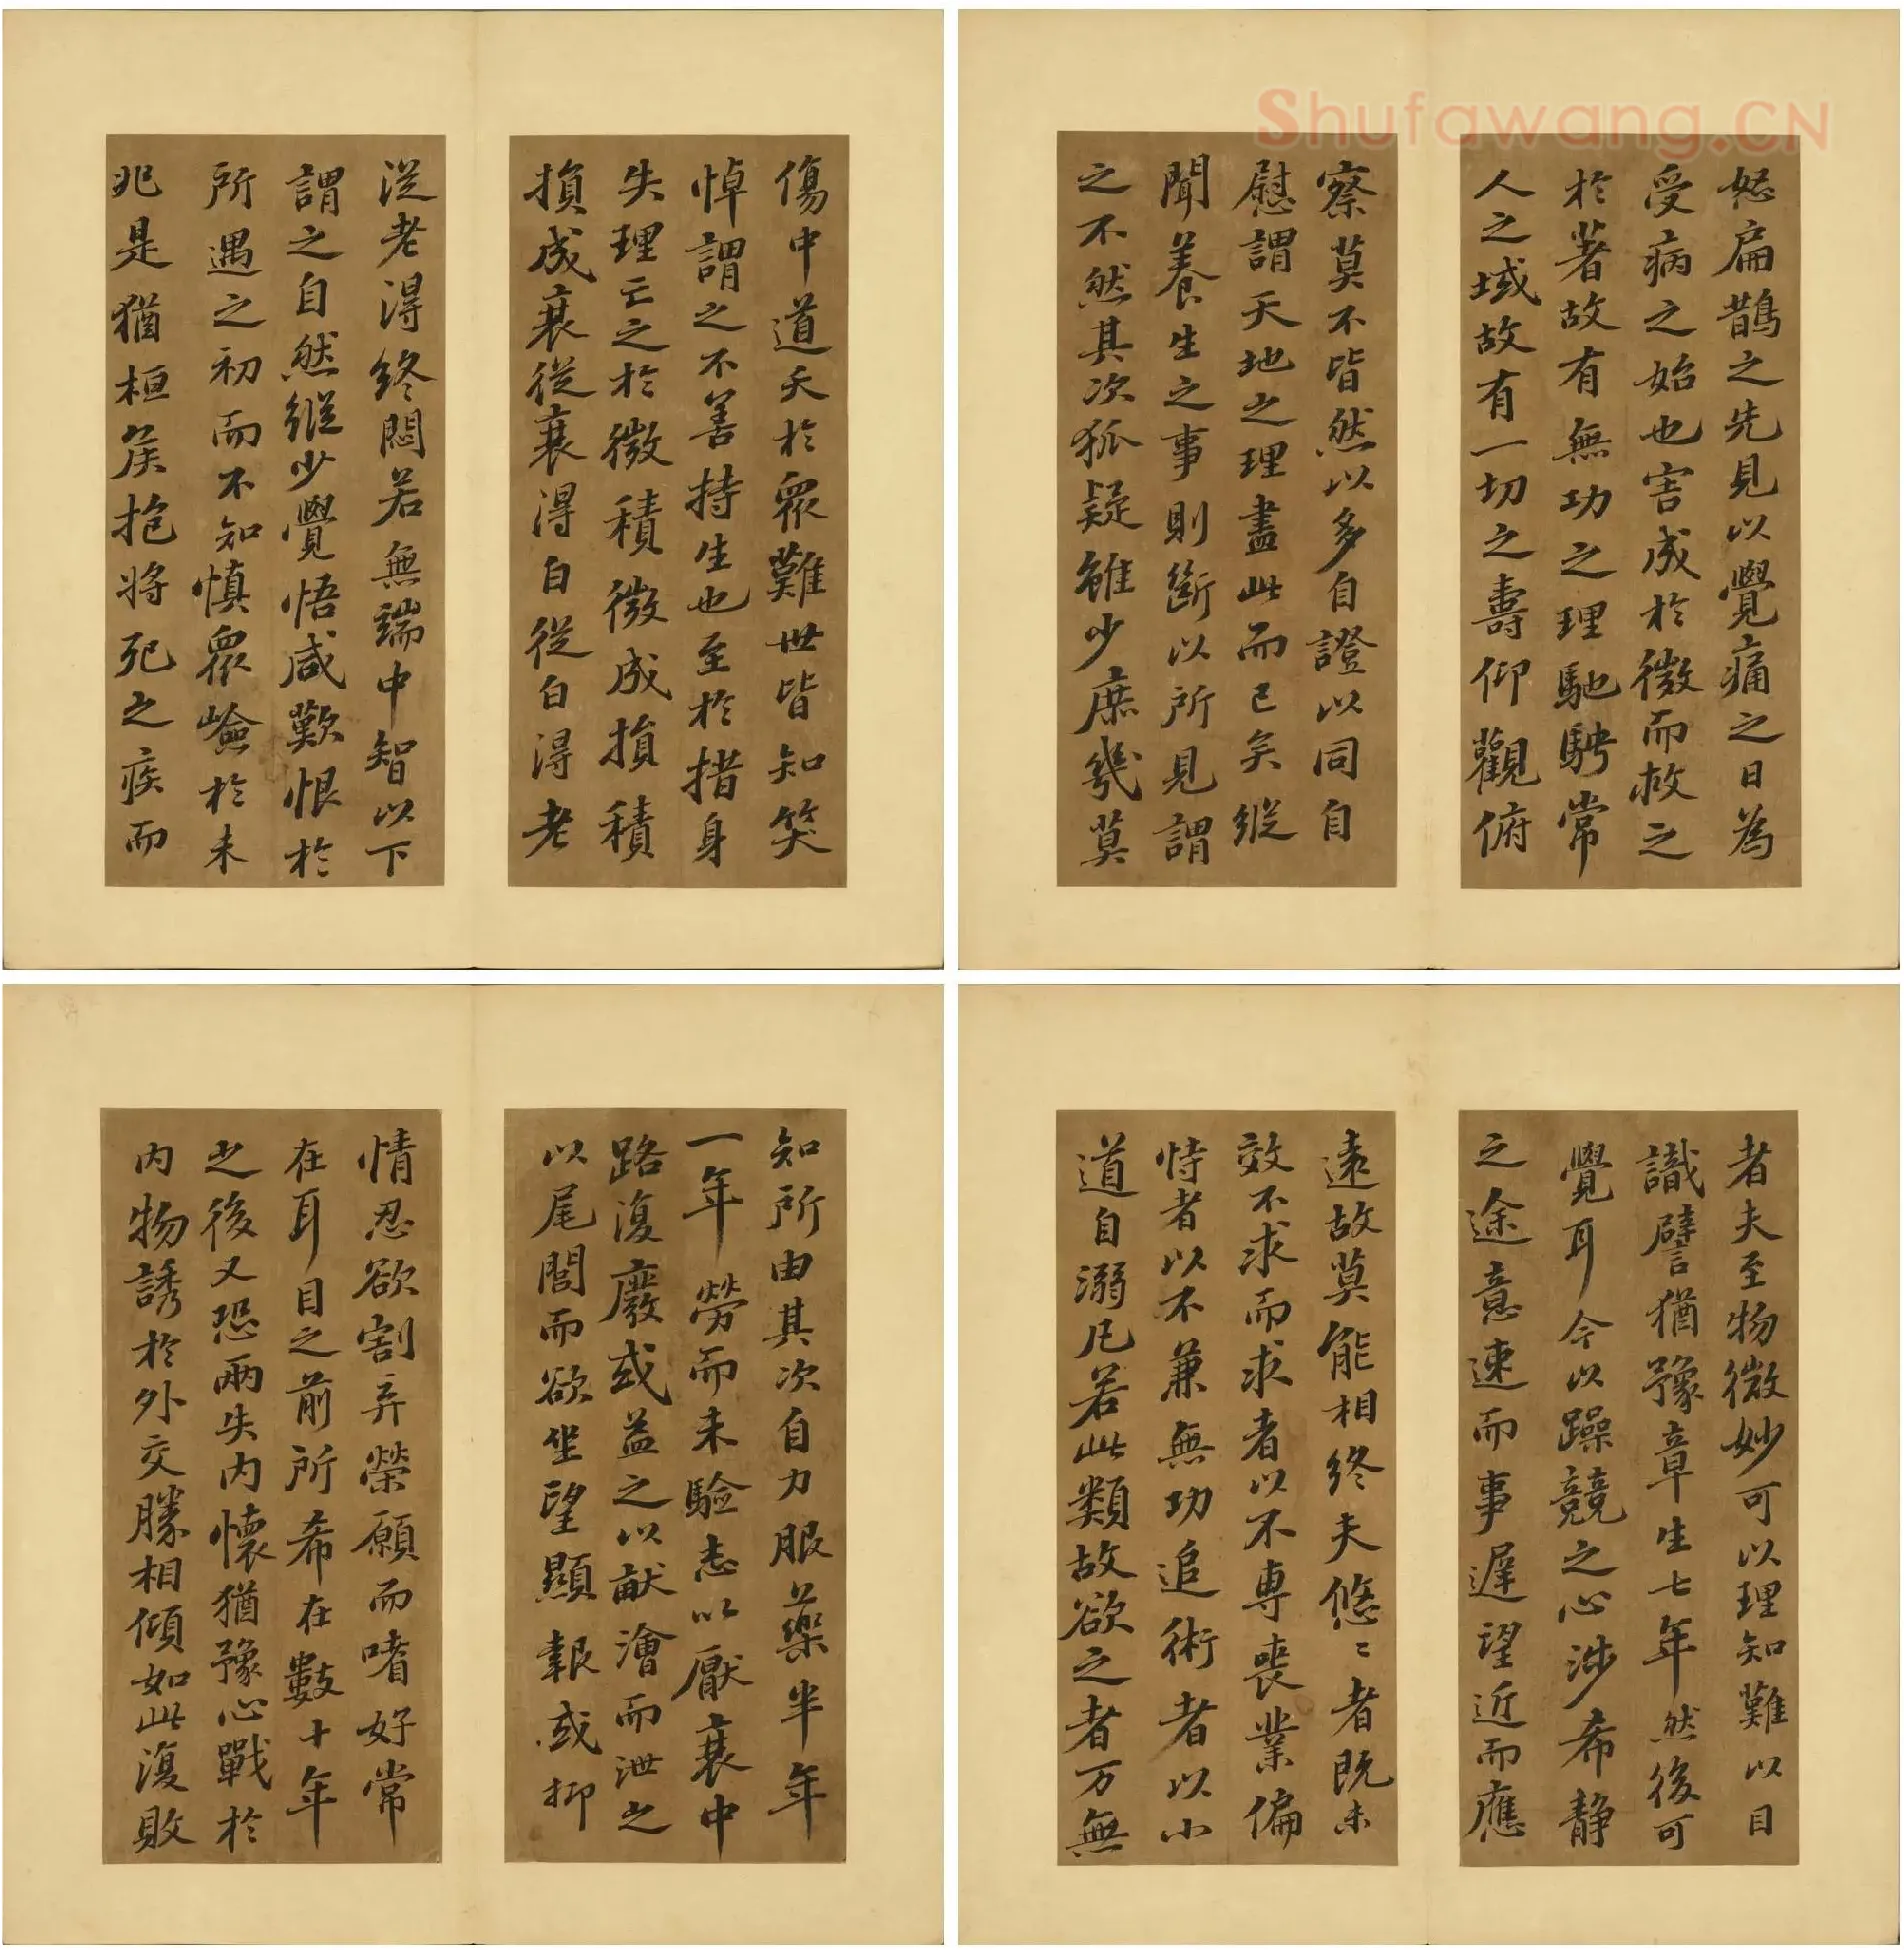 傷中道夭於眾難世皆知笑
悼謂之不善持生也至於措身
失理亡之於微積微成損積
損成衰從衰得白從白得老
從老得終悶若無端中智以下
謂之自然縱少覺悟咸歎恨於
所遇之初而不知慎眾嶮於未
兆是猶桓侯抱將死之疾而
Shufawang.CN
怒扁鵲之先見以覺痛之日為
受病之始也害成於微而救之
於著故有無功之理馳騁常
人之域故有一切之壽仰觀俯
察莫不皆然以多自證以同自
慰謂天地之理盡此而已矣縱
聞養生之事則斷以所見謂
之不然其次狐疑雖少庶幾莫
知所由其次自力服藥半年
一年勞而未驗志以厭衰中
路復廢或益之以畎澮而泄之
以尾閭而欲坐望顯報或抑
情忍欲割弃榮願而嗜好常
在耳目之前所希在數十年
之後又恐兩失內懷猶豫心戰於
內物誘於外交勝相傾如此復敗
者夫至物微妙可以理知難以目
識譬猶豫章生七年然後可
覺耳今以躁競之心涉希静
之途意速而事遲望近而應
遠故莫能相終夫悠〻者既未
效不求而求者以不專喪業偏
恃者以不兼無功追術者以小
道自溺凡若此類故欲之者万無